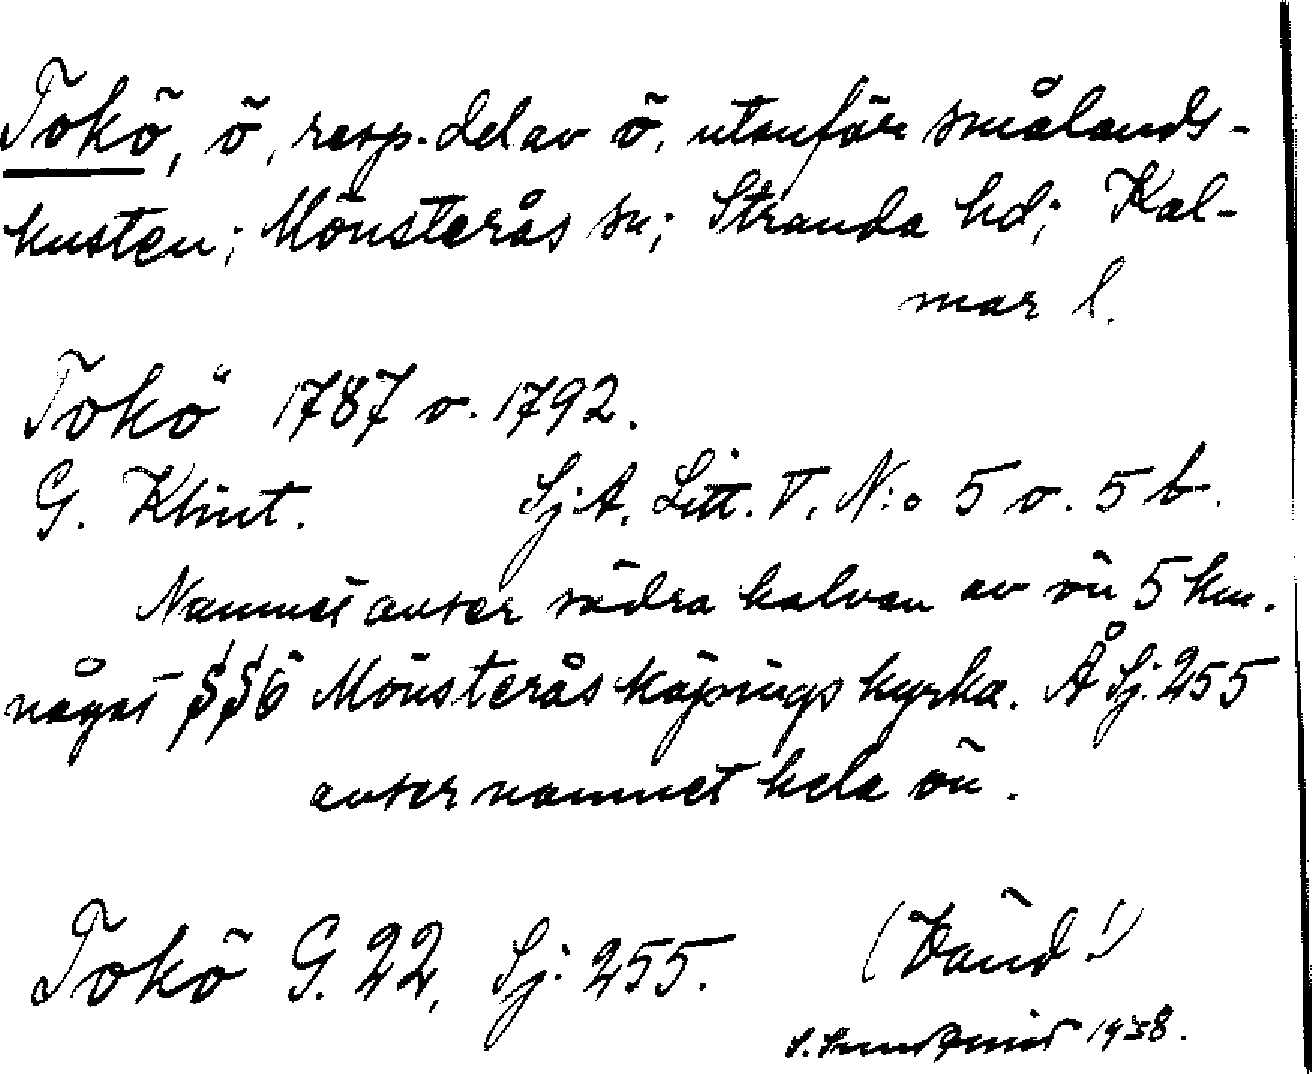 Tokö, ö, resp. del av ö, utanför smålands-
kusten; Mönsterås sn; Stranda hd; Kal-
mar l.
Tokö 1787 o. 1792.
G. Klint. Sj.A. Litt. V. N:o 5 o. 5 b.
Namnet avser södra halvan av ön 5 km.
något SSÖ Mönsterås köpings kyrka. Å Sj: 255
avser namnet hela ön.
Tokö G. 22, Sj: 255. (Vänd!)
1938.